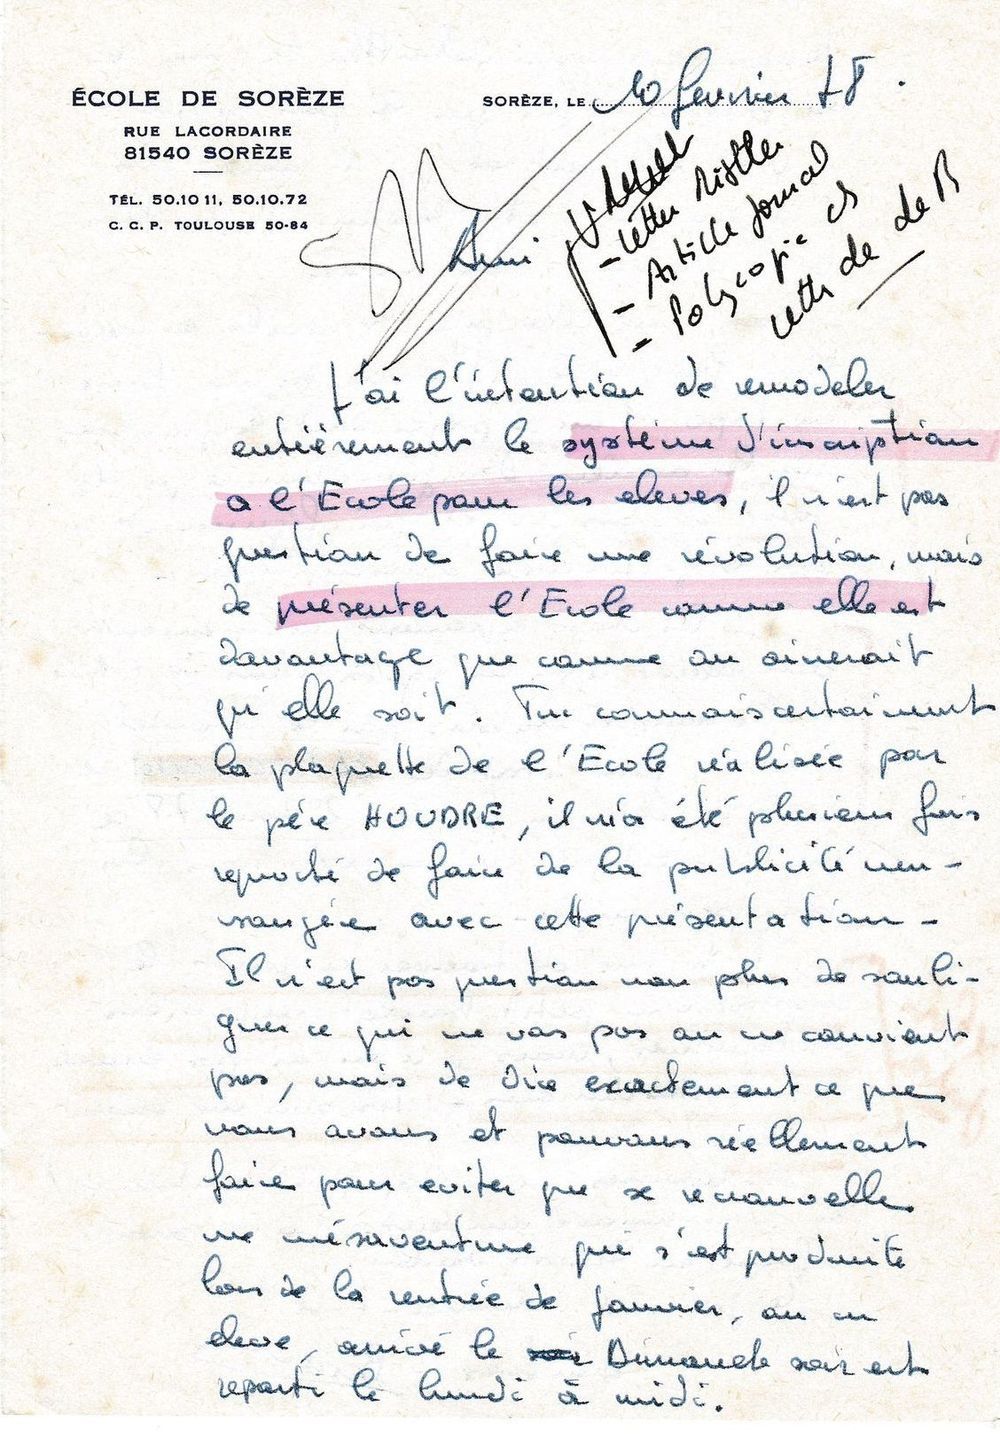 ÉCOLE DE SORÈZE
RUE LACORDAIRE
81540 SORÈZE
TÉL. 50.10 11, 50.10.72
C. C. P. TOULOUSE 50-84
SORÈZE, LE 10 février 78.
- lettre
- Article Journal
- Polycopie
lettre de de B
Ami
J'ai l'intention de remodeler
entièrement le système d'inscription
a l'Ecole pour les eleves, il n'est pas
question de faire une révolution, mais
de présenter l'Ecole comme elle est
davantage que comme on aimerait
qu'elle soit. Tu connais certainement
la plaquette de l'Ecole réalisée par
le père HOUDRE, il m'a été plusieurs fois
reproché de faire de la publicité men-
songère avec cette présentation -
Il n'est pas question non plus de souli-
gner ce qui ne vas pas ou ne convient
pas, mais de dire exactement ce que
nous avons et pouvons réellement
faire pour eviter que se renouvelle
une mésaventure qui s'est produite
lors de la rentrée de Janvier, ou un
eleve, arrivé le Dimanche soir est
reparti le lundi à midi.